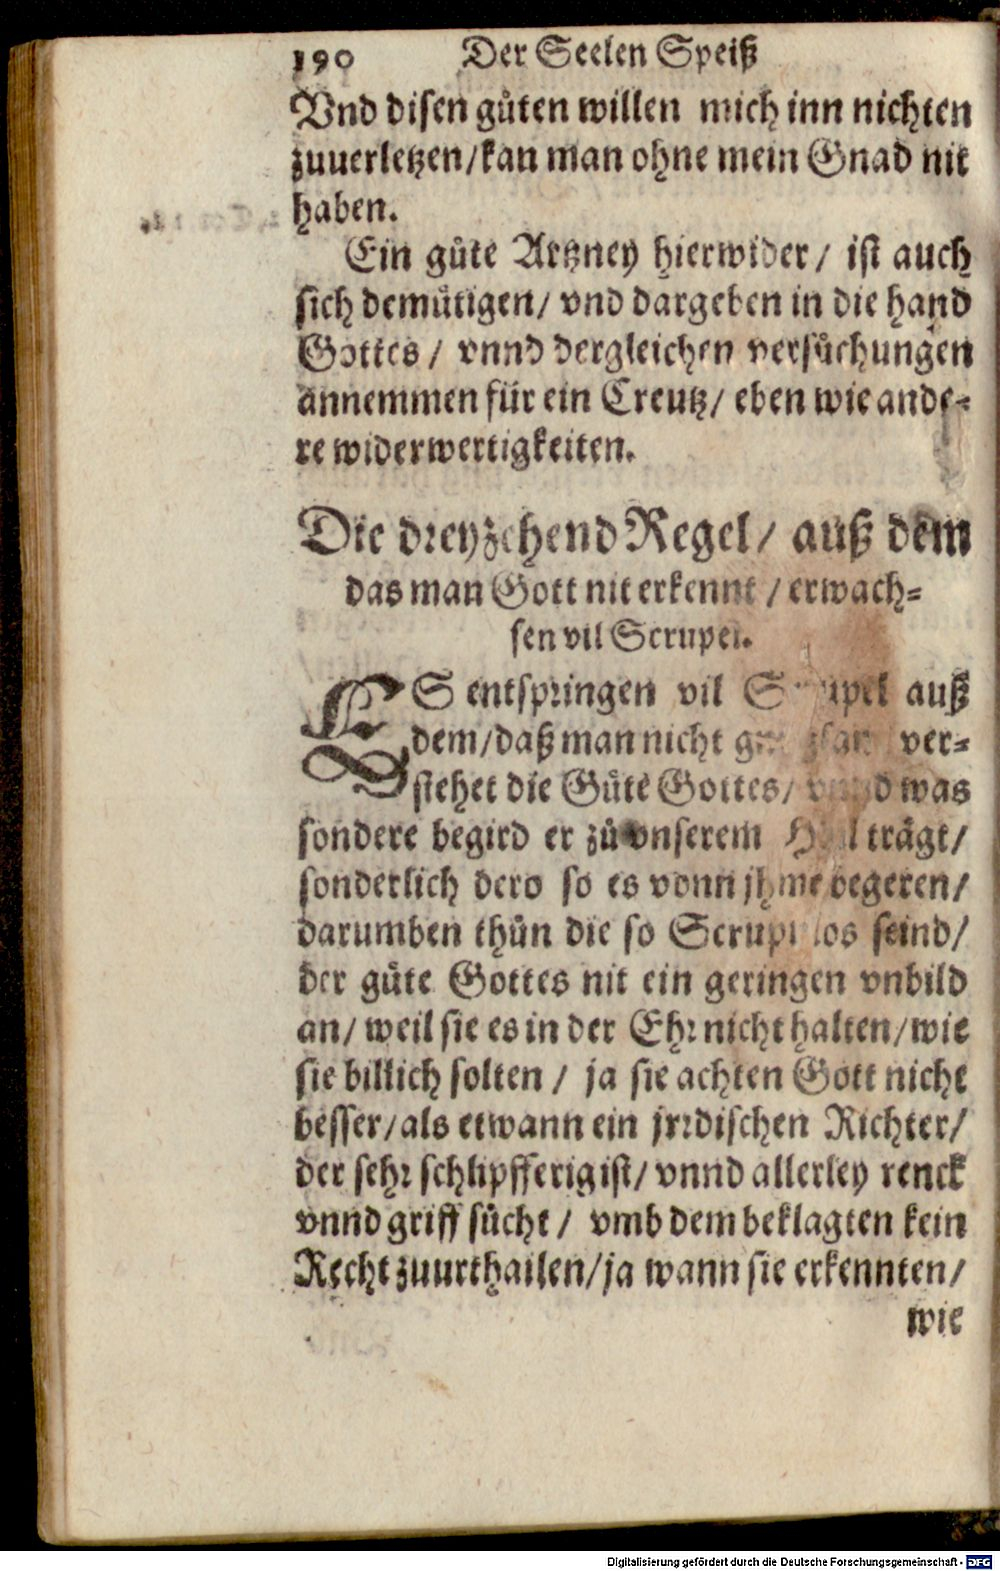 190 Der Seelen Speiß
Vnd disen gůten willen mich inn nichten
zuuerletzen/kan man ohne mein Gnad nit
haben.
Ein gůte Artzney hierwider/ ist auch
sich demütigen/ vnd dargeben in die hand
Gottes/ vnnd dergleichen versůchungen
annemmen für ein Creutz/ eben wie ande-
re widerwertigkeiten.
Die dreyzehend Regel/ auß dem
das man Gott nit erkennt/ erwach-
sen vil Scrupel.
ES entspringen vil Scrupel auß
dem/daß man nicht ver-
stehet die Güte Gottes/ vnnd was
sondere begird er zů vnserem Hail trägt/
sonderlich dero so es vonn jhme begeren/
darumben thůn die so Scrupulos seind/
der güte Gottes nit ein geringen vnbild
an/ weil sie es in der Ehr nicht halten/wie
sie billich solten/ ja sie achten Gott nicht
besser/als etwann ein jrrdischen Richter/
der sehr schlipfferig ist/ vnnd allerley renck
vnnd griff sůcht/ vmb dem beklagten kein
Recht zuurthailen/ja wann sie erkennten/
wie
Digitalisierung gefördert durch die Deutsche Forschungsgemeinschaft - DFG